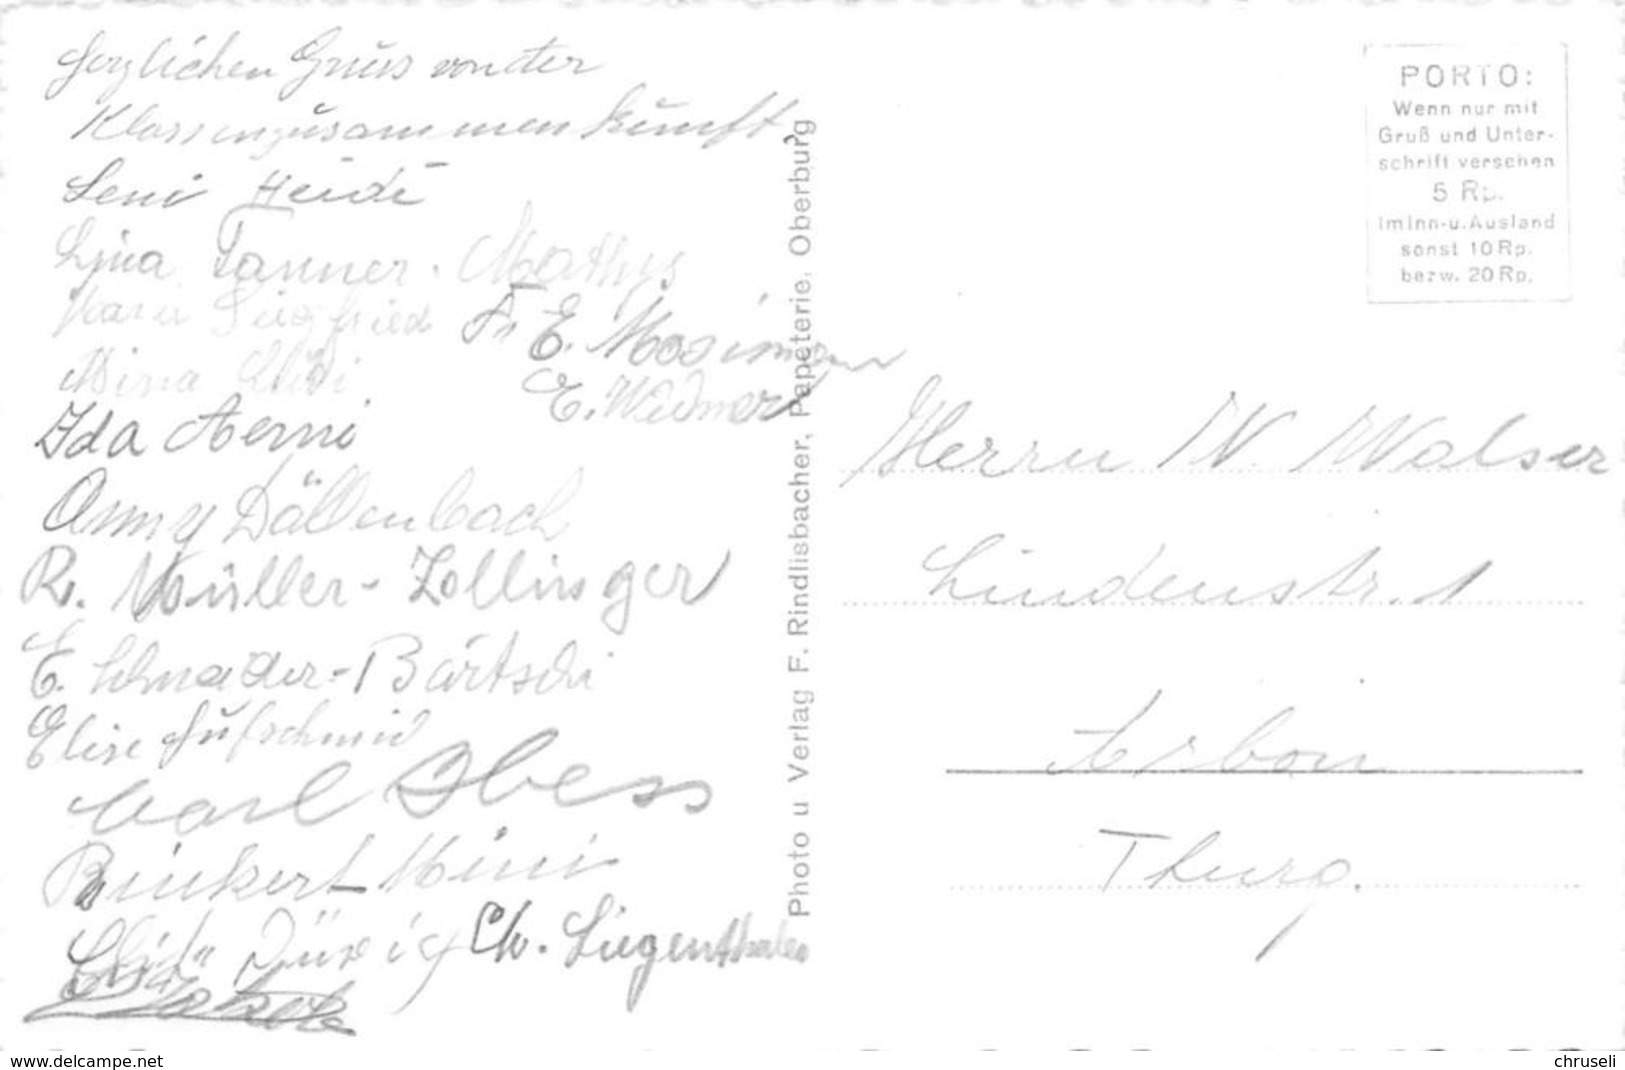 Herzlichen Gruss von der
Klassenzusammenkunft
Leni Heidi
Lina Tanner. Mathys
Marie Siegfried Fr. E. Mosimann
Mina E. Widmer
Ida Aerni
Anny Dällenbach
R. Müller-Zollinger
E. Bärtschi
Elise Hufschmid
Carl Obess
Binkert Mini
Dürig Ch. Liegenthaler
Photo u Verlag F. Rindlisbacher, Papeterie, Oberburg
PORTO:
Wenn nur mit
Gruß und Unter-
schrift versehen
5 Rp.
im Inn-u. Ausland
sonst 10 Rp.
bezw. 20 Rp.
Herrn W. Walser
Lindenstr. 1
Arbon
Thurg.
www.delcampe.net
chruseli